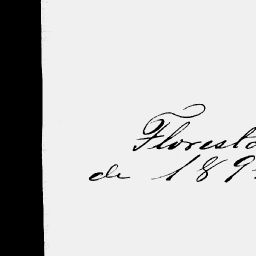 Floresta
de 189